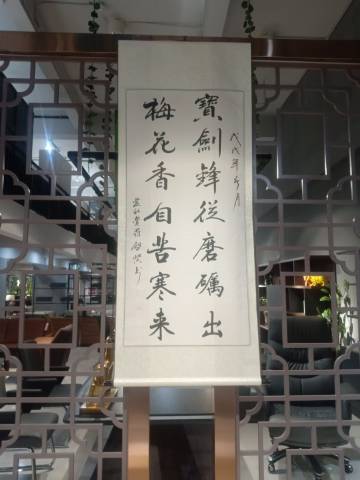 戊戌年冬月
寶劍鋒從磨礪出
梅花香自苦寒来